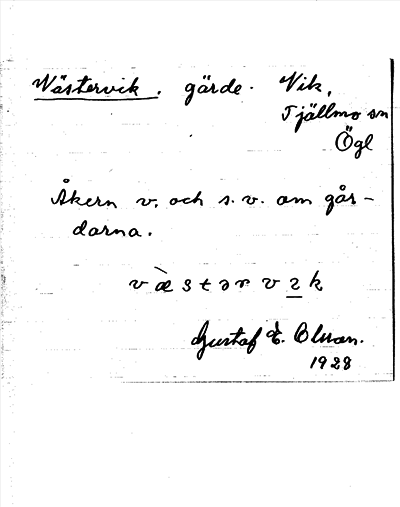 Västervik. gärde. Vik,
Tjällmo sn
Ögl
Åkern v. och s.v. om går-
darna.
væ̀stər vɪk
Gustaf E.
1928